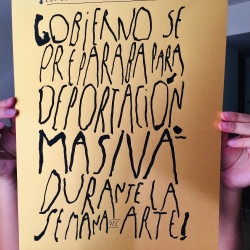 GOBIERNO SE
PREPARABA PARA
DEPORTACIÓN
MASIVA
DURANTE LA
SEMANA DEL ARTE!